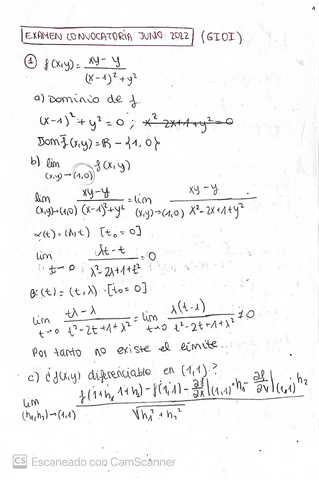 EXAMEN CONVOCATORIA JUNIO 2022 (GIOI)
① f(x,y) = xy - y / (x-1)² + y²
a) Dominio de f.
(x-1)² + y² = 0 ; x² 2x+1+y² = 0
Dom f(x,y) = R - {1,0}
b) lim (x,y)→(1,0) f(x,y)
lim (x,y)→(1,0) xy-y / (x-1)²+y² = lim (x,y)→(1,0) xy-y / x²-2x+1+y²
α(t) = (λ,t) [t₀ = 0]
lim t→0 λt-t / λ²-2λ+1+t² = 0
β(t) = (t,λ) · [t₀ = 0]
lim t→0 tλ-λ / t²-2t+1+λ² = lim t→0 λ(t-1) / t²-2t+1+λ² ≠ 0
Por tanto no existe el límite.
c) ¿f(x,y) diferenciable en (1,1)?
lim (h₁,h₂)→(1,1) f(1+h₁, 1+h₂) - f(1,1) - ∂f/∂x|(1,1)·h₁ - ∂f/∂y|(1,1)·h₂ / √h₁² + h₂²
CS Escaneado con CamScanner